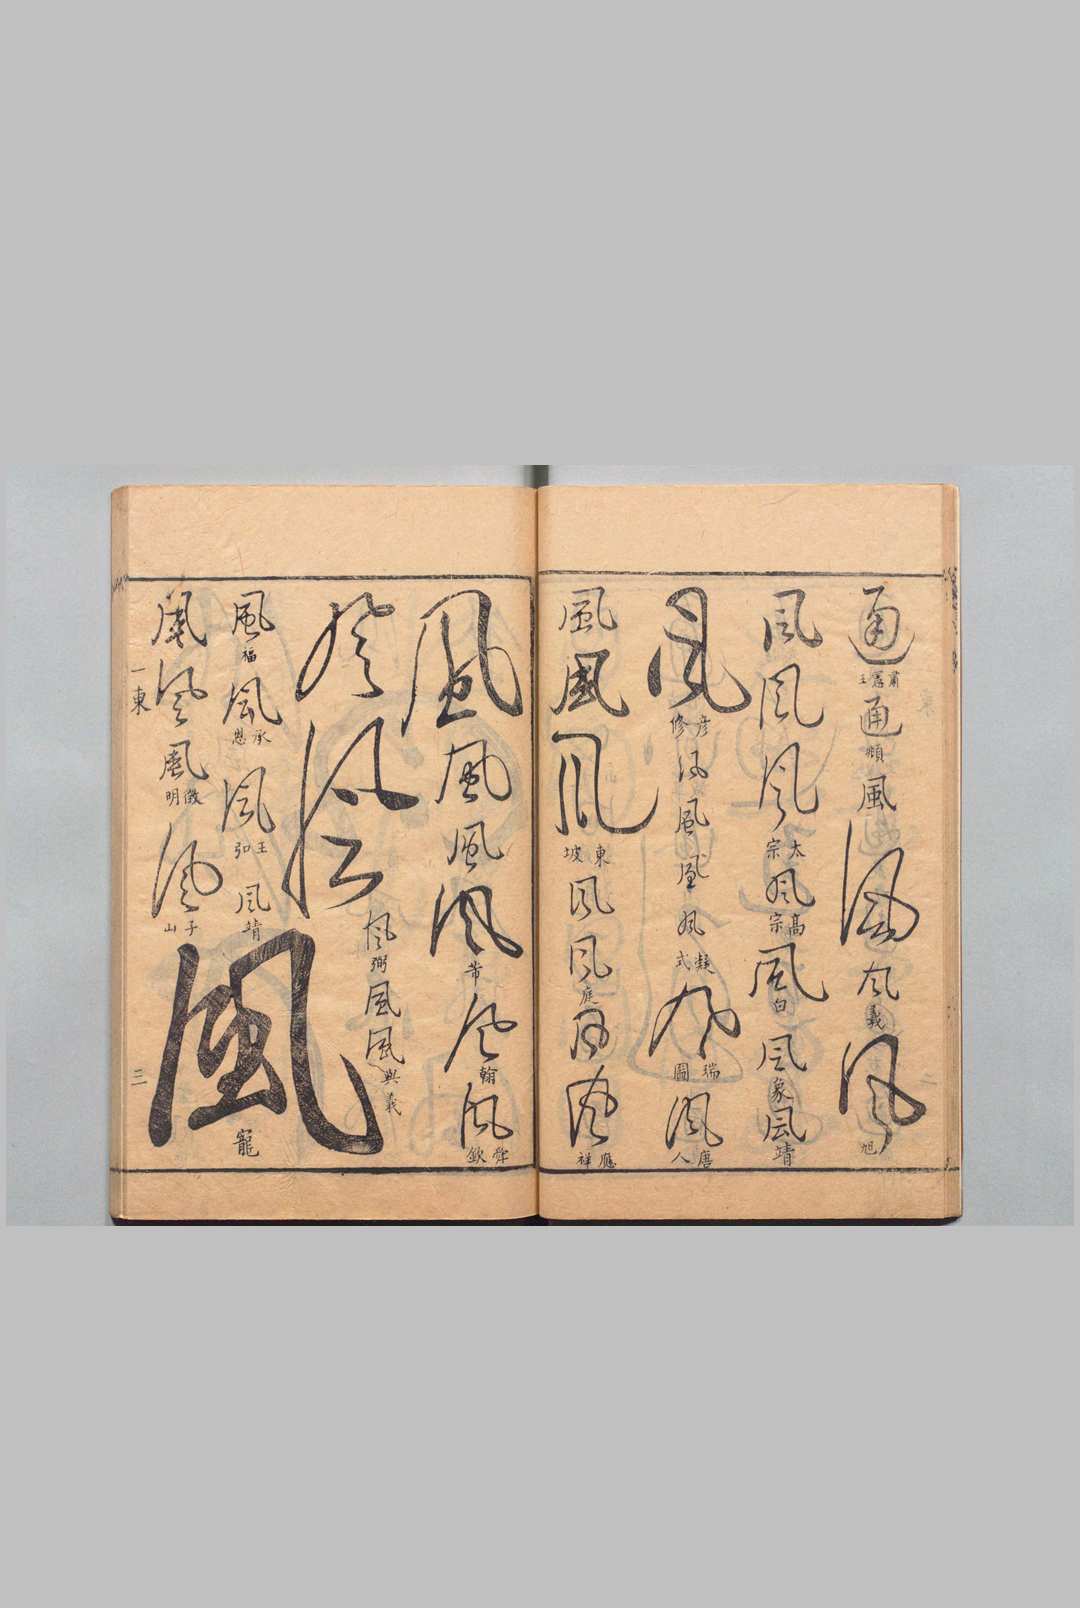 通 肅愨王 通 頫 風 風 風 義 風 旭
風 風 風 太宗 風 高宗 風 白 風 象 風 靖
風 彦修 風 風 風 風 凝式 風 瑞圖 風 唐人
風 風 風 東坡 風 風 庭 風 風 應祥
風 風 風 風 芾 風 翰 風 舜欽
風 風 風 風 弼 風 風 與義
風 福 風 承恩 風 王弘 風 靖 風 寵
風 風 風 徵明 風 子山
一東
三